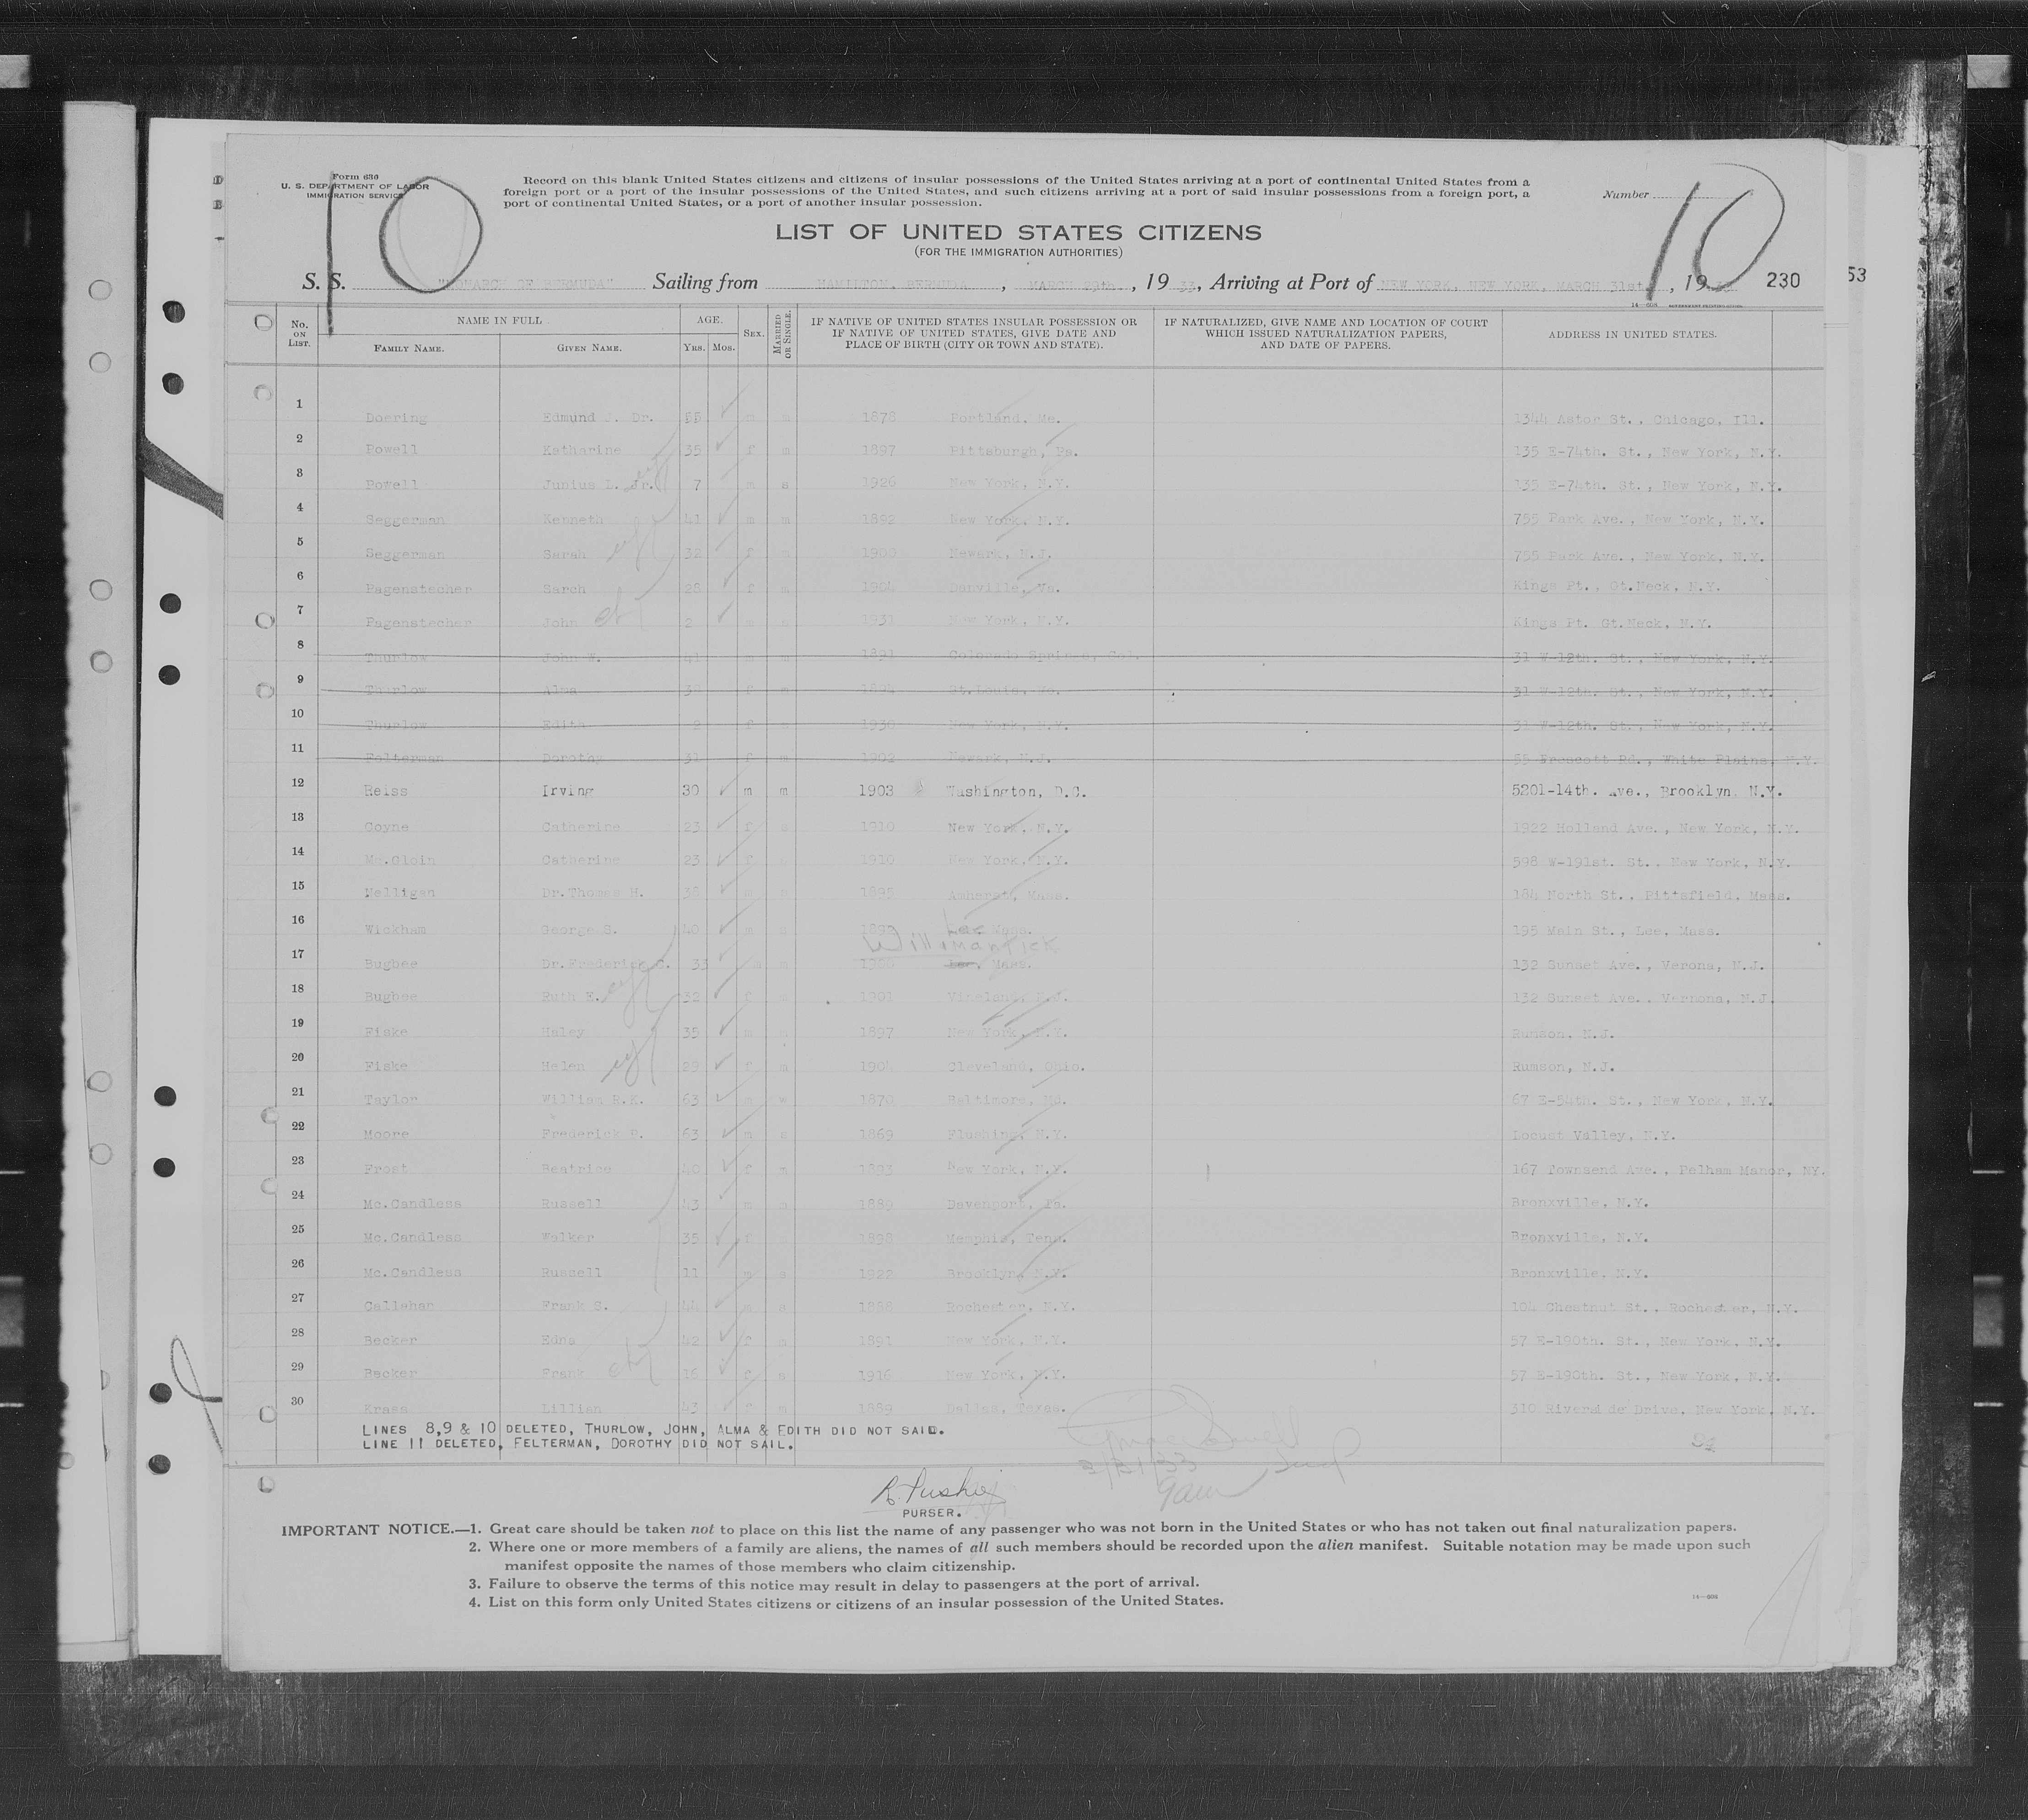 Form 630
U. S. DEPARTMENT OF LABOR
IMMIGRATION SERVICE
10
Record on this blank United States citizens and citizens of insular possessions of the United States arriving at a port of continental United States from a
foreign port or a port of the insular possessions of the United States, and such citizens arriving at a port of said insular possessions from a foreign port, a
port of continental United States, or a port of another insular possession.
Number
10
LIST OF UNITED STATES CITIZENS
(FOR THE IMMIGRATION AUTHORITIES)
S. S. "MONARCH OF BERMUDA" Sailing from HAMILTON, BERMUDA, MARCH 29th., 1933, Arriving at Port of NEW YORK, NEW YORK, MARCH 31st., 19 230 53
No. ON LIST. NAME IN FULL AGE. SEX. MARRIED OR SINGLE. IF NATIVE OF UNITED STATES INSULAR POSSESSION OR IF NATIVE OF UNITED STATES, GIVE DATE AND PLACE OF BIRTH (CITY OR TOWN AND STATE). IF NATURALIZED, GIVE NAME AND LOCATION OF COURT WHICH ISSUED NATURALIZATION PAPERS, AND DATE OF PAPERS. ADDRESS IN UNITED STATES.
FAMILY NAME. GIVEN NAME. YRS. MOS.
1 Doering Edmund J. Dr. 55 m m 1878 Portland, Me. 1344 Astor St., Chicago, Ill.
2 Powell Katharine 35 f m 1897 Pittsburgh, Pa. 135 E-74th. St., New York, N.Y.
3 Powell Junius L. Jr. 7 m s 1926 New York, N.Y. 135 E-74th. St., New York, N.Y.
4 Seggerman Kenneth 41 m m 1892 New York, N.Y. 755 Park Ave., New York, N.Y.
5 Seggerman Sarah 32 f m 1900 Newark, N.J. 755 Park Ave., New York, N.Y.
6 Pagenstecher Sarah 28 f m 1904 Danville, Va. Kings Pt., Gt.Neck, N.Y.
7 Pagenstecher John 2 m s 1931 New York, N.Y. Kings Pt. Gt.Neck, N.Y.
8 Thurlow John W. 41 m m 1891 Colorado Springs, Col. 31 W-12th. St., New York, N.Y.
9 Thurlow Alma f m St.Louis, Mo. 31 W-12th. St., New York, N.Y.
10 Thurlow Edith 2 f 1930 New York, N.Y. 31 W-12th. St., New York, N.Y.
11 Felterman Dorothy 31 f m 1902 Newark, N.J. 55 Prescott Rd., White Plains, N.Y.
12 Reiss Irving 30 m m 1903 Washington, D.C. 5201-14th. Ave., Brooklyn, N.Y.
13 Coyne Catherine 23 f s 1910 New York, N.Y. 1922 Holland Ave., New York, N.Y.
14 Mc.Gloin Catherine 23 f 1910 New York, N.Y. 598 W-191st. St., New York, N.Y.
15 Nelligan Dr.Thomas H. 38 m 1895 Amherst, Mass. 184 North St., Pittsfield, Mass.
16 Wickham George S. 40 m Lee Mass. 195 Main St., Lee, Mass.
Willimantick
17 Bugbee Dr.Frederick C. 33 m m 1900 Mass. 132 Sunset Ave., Verona, N.J.
18 Bugbee Ruth E. 32 f 1901 Vineland, N.J. 132 Sunset Ave., Vernona, N.J.
19 Fiske Haley 35 m 1897 New York, N.Y. Rumson, N.J.
20 Fiske Helen 29 f m 1904 Cleveland, Ohio. Rumson, N.J.
21 Taylor William R.K. 63 m w 1870 Baltimore, Md. 67 E-54th. St., New York, N.Y.
22 Moore Frederick P. 63 m s 1869 Flushing, N.Y. Locust Valley, N.Y.
23 Frost Beatrice 40 f m 1893 New York, N.Y. 167 Townsend Ave., Pelham Manor, NY.
24 Mc.Candless Russell 43 m m 1889 Davenport, Pa. Bronxville, N.Y.
25 Mc.Candless Walker 35 f 1898 Memphis, Tenn. Bronxville, N.Y.
26 Mc.Candless Russell 11 m s 1922 Brooklyn, N.Y. Bronxville, N.Y.
27 Callahan Frank S. 44 m s 1888 Rochester, N.Y. 104 Chestnut St., Rochester, N.Y.
28 Becker Edna 42 f m 1891 New York, N.Y. 57 E-190th. St., New York, N.Y.
29 Becker Frank 16 f s 1916 New York, N.Y. 57 E-190th. St., New York, N.Y.
30 Krass Lillian 43 f m 1889 Dallas, Texas. 310 Riversi de Drive, New York, N.Y.
LINES 8,9 & 10 DELETED, THURLOW, JOHN, ALMA & EDITH DID NOT SAIL.
LINE 11 DELETED, FELTERMAN, DOROTHY DID NOT SAIL.
3/31/33
PURSER.
IMPORTANT NOTICE.—1. Great care should be taken not to place on this list the name of any passenger who was not born in the United States or who has not taken out final naturalization papers.
2. Where one or more members of a family are aliens, the names of all such members should be recorded upon the alien manifest. Suitable notation may be made upon such
manifest opposite the names of those members who claim citizenship.
3. Failure to observe the terms of this notice may result in delay to passengers at the port of arrival.
4. List on this form only United States citizens or citizens of an insular possession of the United States.